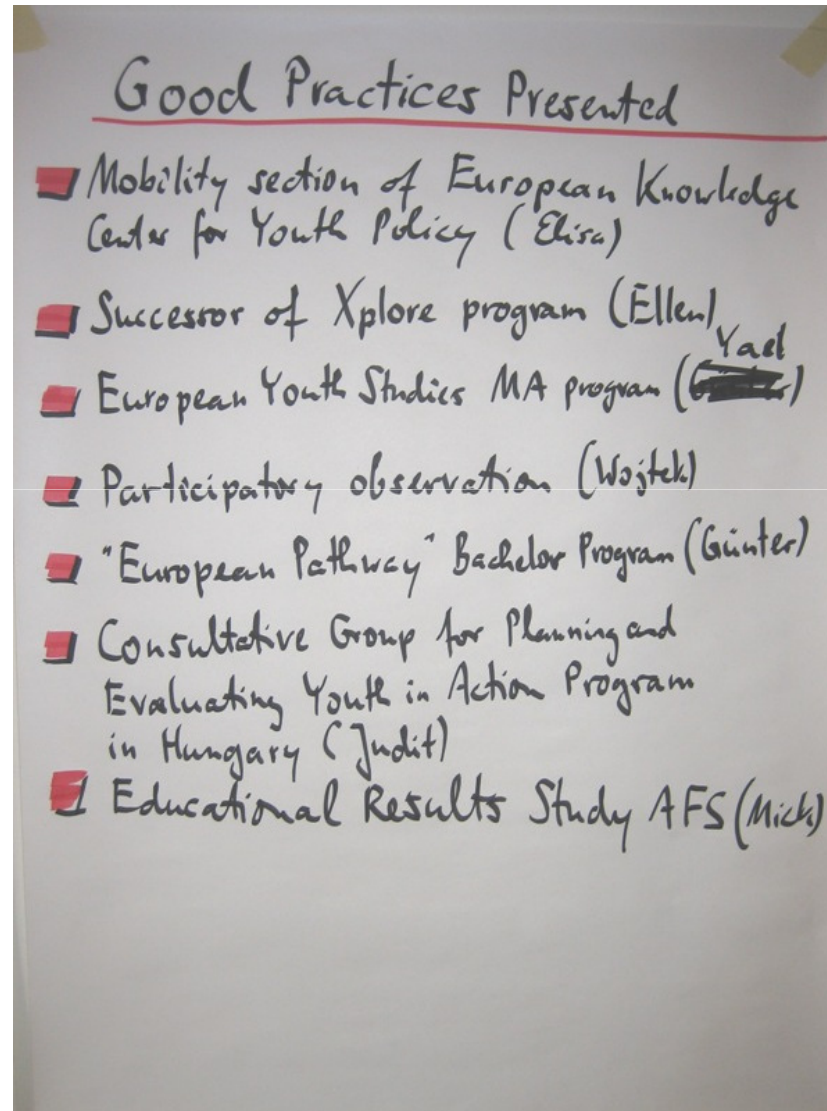 Good Practices Presented
Mobility section of European Knowledge
Center for Youth Policy (Elisa)
Successor of Xplore program (Ellen)
Yael
European Youth Studies MA program ( )
Participatory observation (Wojtek)
"European Pathway" Bachelor Program (Günter)
Consultative Group for Planning and
Evaluating Youth in Action Program
in Hungary (Judit)
Educational Results Study AFS (Mick)